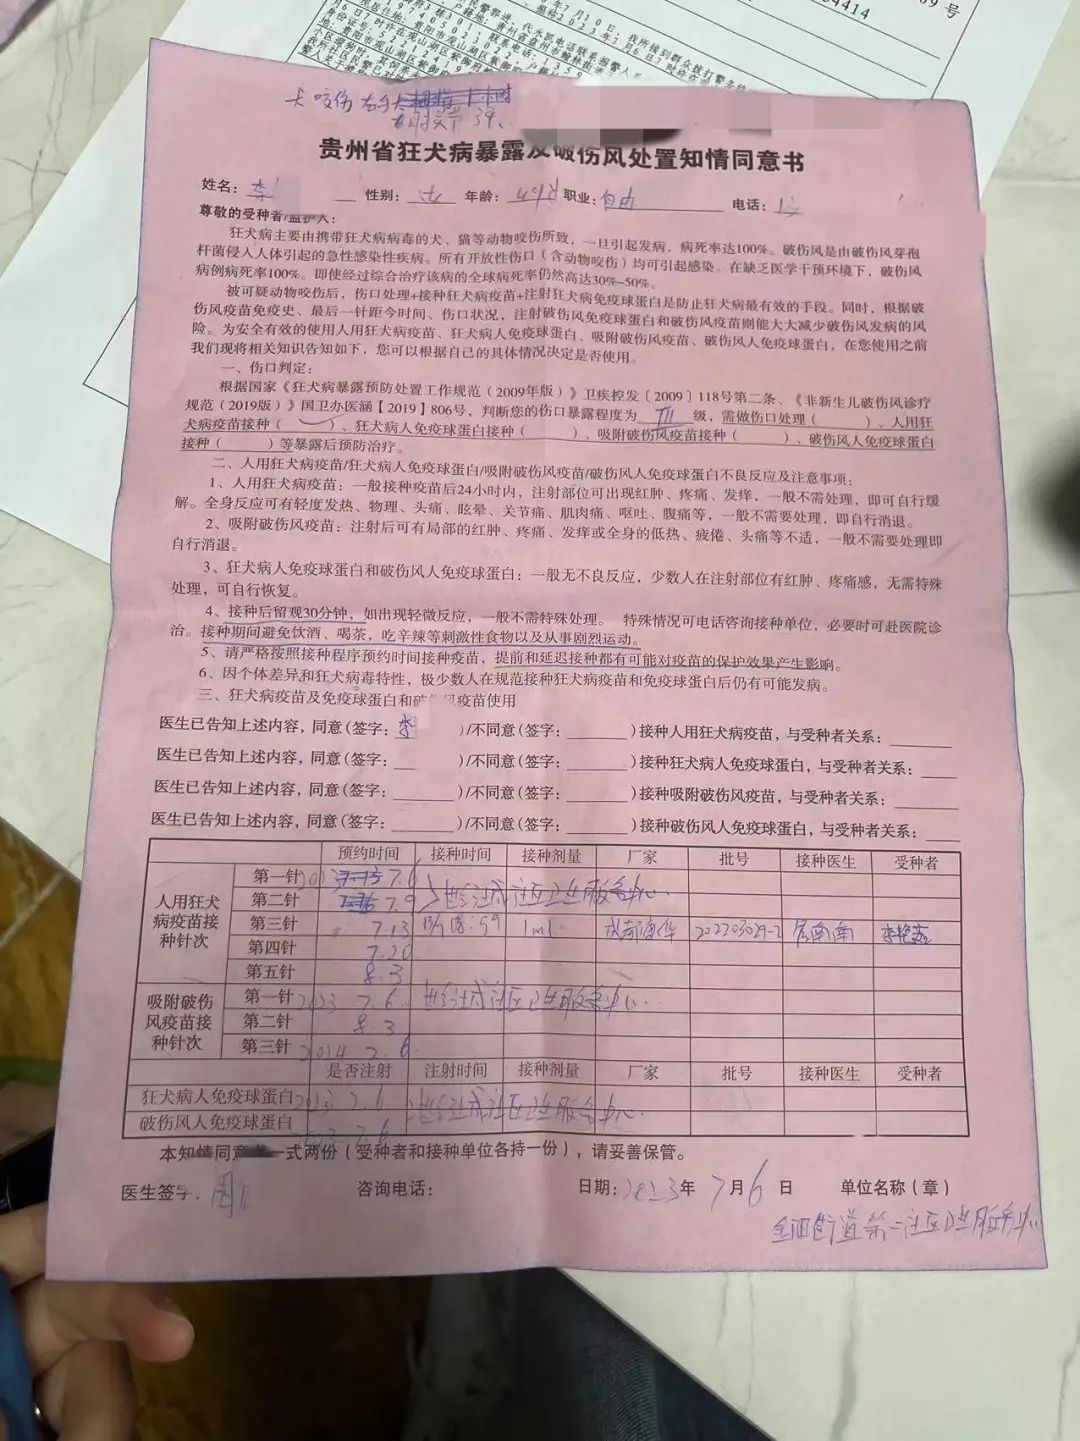 犬咬伤
贵州省狂犬病暴露及破伤风处置知情同意书
姓名：李 性别：女 年龄：49岁 职业：自由 电话：
尊敬的受种者/监护人：
狂犬病主要由携带狂犬病病毒的犬、猫等动物咬伤所致，一旦引起发病，病死率达100%。破伤风是由破伤风芽孢
杆菌侵入人体引起的急性感染性疾病。所有开放性伤口（含动物咬伤）均可引起感染。在缺乏医学干预环境下，破伤风
病例病死率100%。即使经过综合治疗该病的全球病死率仍然高达30%~50%。
被可疑动物咬伤后，伤口处理+接种狂犬病疫苗+注射狂犬病免疫球蛋白是防止狂犬病最有效的手段。同时，根据破
伤风疫苗免疫史、最后一针距今时间、伤口状况，注射破伤风免疫球蛋白和破伤风疫苗则能大大减少破伤风发病的风
险。为安全有效的使用人用狂犬病疫苗、狂犬病人免疫球蛋白、吸附破伤风疫苗、破伤风人免疫球蛋白，在您使用之前
我们现将相关知识告知如下，您可以根据自己的具体情况决定是否使用。
一、伤口判定：
根据国家《狂犬病暴露预防处置工作规范（2009年版）》卫疾控发〔2009〕118号第二条、《非新生儿破伤风诊疗
规范（2019版）》国卫办医涵【2019】806号，判断您的伤口暴露程度为 III 级，需做伤口处理（ ）、人用狂
犬病疫苗接种（ ）、狂犬病人免疫球蛋白接种（ ）、吸附破伤风疫苗接种（ ）、破伤风人免疫球蛋白
接种（ ）等暴露后预防治疗。
二、人用狂犬病疫苗/狂犬病人免疫球蛋白/吸附破伤风疫苗/破伤风人免疫球蛋白不良反应及注意事项：
1、人用狂犬病疫苗：一般接种疫苗后24小时内，注射部位可出现红肿、疼痛、发痒，一般不需处理，即可自行缓
解。全身反应可有轻度发热、物理、头痛、眩晕、关节痛、肌肉痛、呕吐、腹痛等，一般不需要处理，即自行消退。
2、吸附破伤风疫苗：注射后可有局部的红肿、疼痛、发痒或全身的低热、疲倦、头痛等不适，一般不需要处理即
自行消退。
3、狂犬病人免疫球蛋白和破伤风人免疫球蛋白：一般无不良反应，少数人在注射部位有红肿、疼痛感，无需特殊
处理，可自行恢复。
4、接种后留观30分钟，如出现轻微反应，一般不需特殊处理。 特殊情况可电话咨询接种单位，必要时可赴医院诊
治。接种期间避免饮酒、喝茶，吃辛辣等刺激性食物以及从事剧烈运动。
5、请严格按照接种程序预约时间接种疫苗，提前和延迟接种都有可能对疫苗的保护效果产生影响。
6、因个体差异和狂犬病毒特性，极少数人在规范接种狂犬病疫苗和免疫球蛋白后仍有可能发病。
三、狂犬病疫苗及免疫球蛋白和破伤风疫苗使用
医生已告知上述内容，同意（签字：李 ）/不同意（签字： ）接种人用狂犬病疫苗，与受种者关系：
医生已告知上述内容，同意（签字： ）/不同意（签字： ）接种狂犬病人免疫球蛋白，与受种者关系：
医生已告知上述内容，同意（签字： ）/不同意（签字： ）接种吸附破伤风疫苗，与受种者关系：
医生已告知上述内容，同意（签字： ）/不同意（签字： ）接种破伤风人免疫球蛋白，与受种者关系：
预约时间 接种时间 接种剂量 厂家 批号 接种医生 受种者
人用狂犬病疫苗接种针次
第一针 2023 7.6
第二针 7.9 社区卫生服务中心
第三针 7.13 18:59 1ml 202203029-2
第四针 7.20
第五针 8.3
吸附破伤风疫苗接种针次
第一针 2023 7.6 社区卫生服务中心
第二针 8.3
第三针 2024 2.6
是否注射 注射时间 接种剂量 厂家 批号 接种医生 受种者
狂犬病人免疫球蛋白 2023 7.6 社区卫生服务中心
破伤风人免疫球蛋白 2023.7.6
本知情同意 一式两份（受种者和接种单位各持一份），请妥善保管。
医生签字： 周 咨询电话： 日期：2023年 7月 6日 单位名称（章）
街道第二社区卫生服务中心